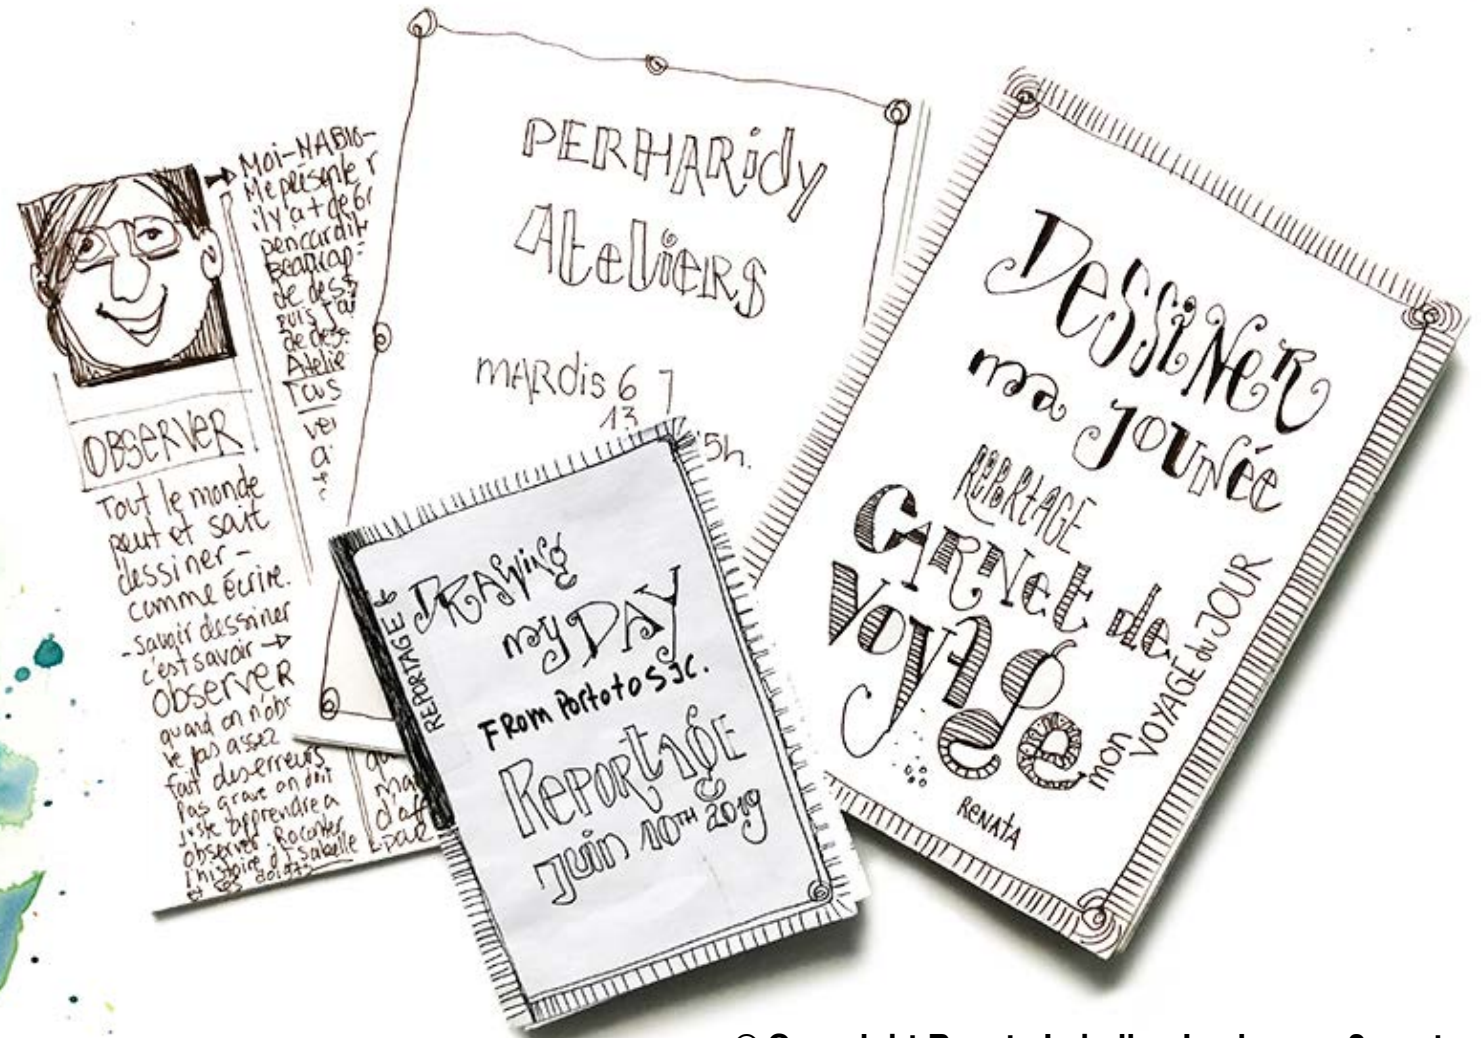 Moi-NABIO-
Me présente
il y'a + de
pencardit
Beaucap
de dess
puis j'ai
de des.
Atelie
Tous
OBSERVER
Tout le monde
peut et sait
dessiner-
comme écrire.
-savoir dessiner
c'est savoir →
OBSERVER
quand on n'obs
ve pas assez
fait des erreurs
Pas grave on doit
juste apprendre a
observer. Raconter
l'histoire d'Isabelle
et ses doigts
PERHARidy
AteliERS
MARdis 6 7
13
15h.
REPORTAGE
DRAWING
my DAY
FROM Porto to SJC.
REPORtAGE
Juin 10TH 2019
DESSiNER
ma JOURNéE
REPORtAGE
CARNEt de
VOYAGe
mon
VOYAGE du JOUR
RENATA